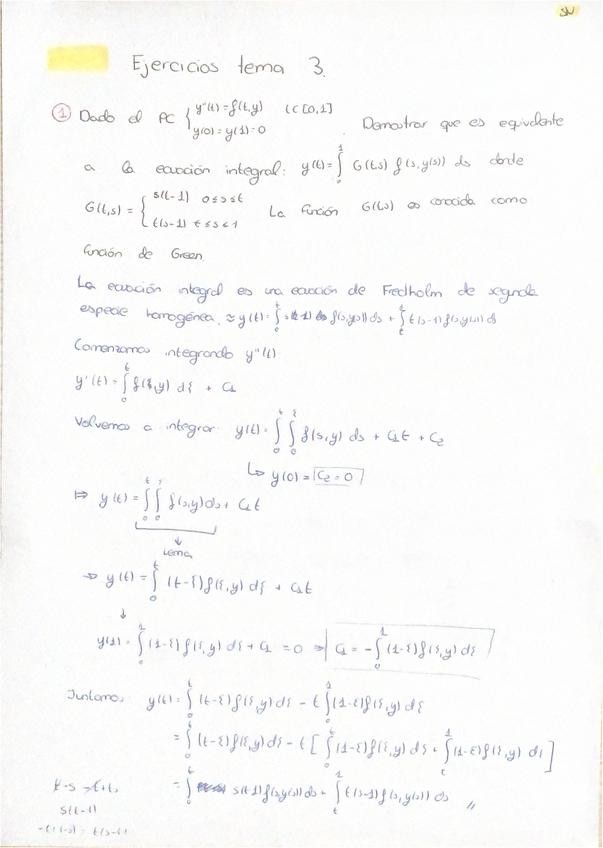 SN
Ejercicios tema 3.
① Dado el PC { y''(t) = f(t,y) t ∈ [0,1]
y(0) = y(1) = 0 . Demostrar que es equivalente
a la ecuación integral: y(t) = ∫₀¹ G(t,s) f(s, y(s)) ds donde
G(t,s) = { s(t-1) 0 ≤ s ≤ t
t(s-1) t ≤ s ≤ 1 La función G(t,s) es conocida como
función de Green
La ecuación integral es una ecuación de Fredholm de segunda
especie homogénea. ≈ y(t) = ∫₀ᵗ s(t-1) f(s,y(s)) ds + ∫ₜ¹ t(s-1) f(s,y(s)) ds
Comenzamos integrando y''(t)
y'(t) = ∫₀ᵗ f(ξ,y) dξ + C₁
Volvemos a integrar: y(t) = ∫₀ᵗ ∫₀^ξ f(s,y) ds + C₁t + C₂
↳ y(0) = C₂ = 0
⇒ y(t) = ∫₀ᵗ ∫₀ˢ f(s,y) ds + C₁t
↓
Lema
⇒ y(t) = ∫₀ᵗ (t-ξ) f(ξ,y) dξ + C₁t
↓
y(1) = ∫₀¹ (1-ξ) f(ξ,y) dξ + C₁ = 0 ⇒ C₁ = -∫₀¹ (1-ξ) f(ξ,y) dξ
Juntamos: y(t) = ∫₀ᵗ (t-ξ) f(ξ,y) dξ - t ∫₀¹ (1-ξ) f(ξ,y) dξ
= ∫₀ᵗ (t-ξ) f(ξ,y) dξ - t [ ∫₀ᵗ (1-ξ) f(ξ,y) dξ + ∫ₜ¹ (1-ξ) f(ξ,y) dξ ]
= ∫₀ᵗ s(t-1) f(s,y(s)) ds + ∫ₜ¹ t(s-1) f(s,y(s)) ds //
t-s -t+ts
s(t-1)
-t(1-s) = t(s-1)